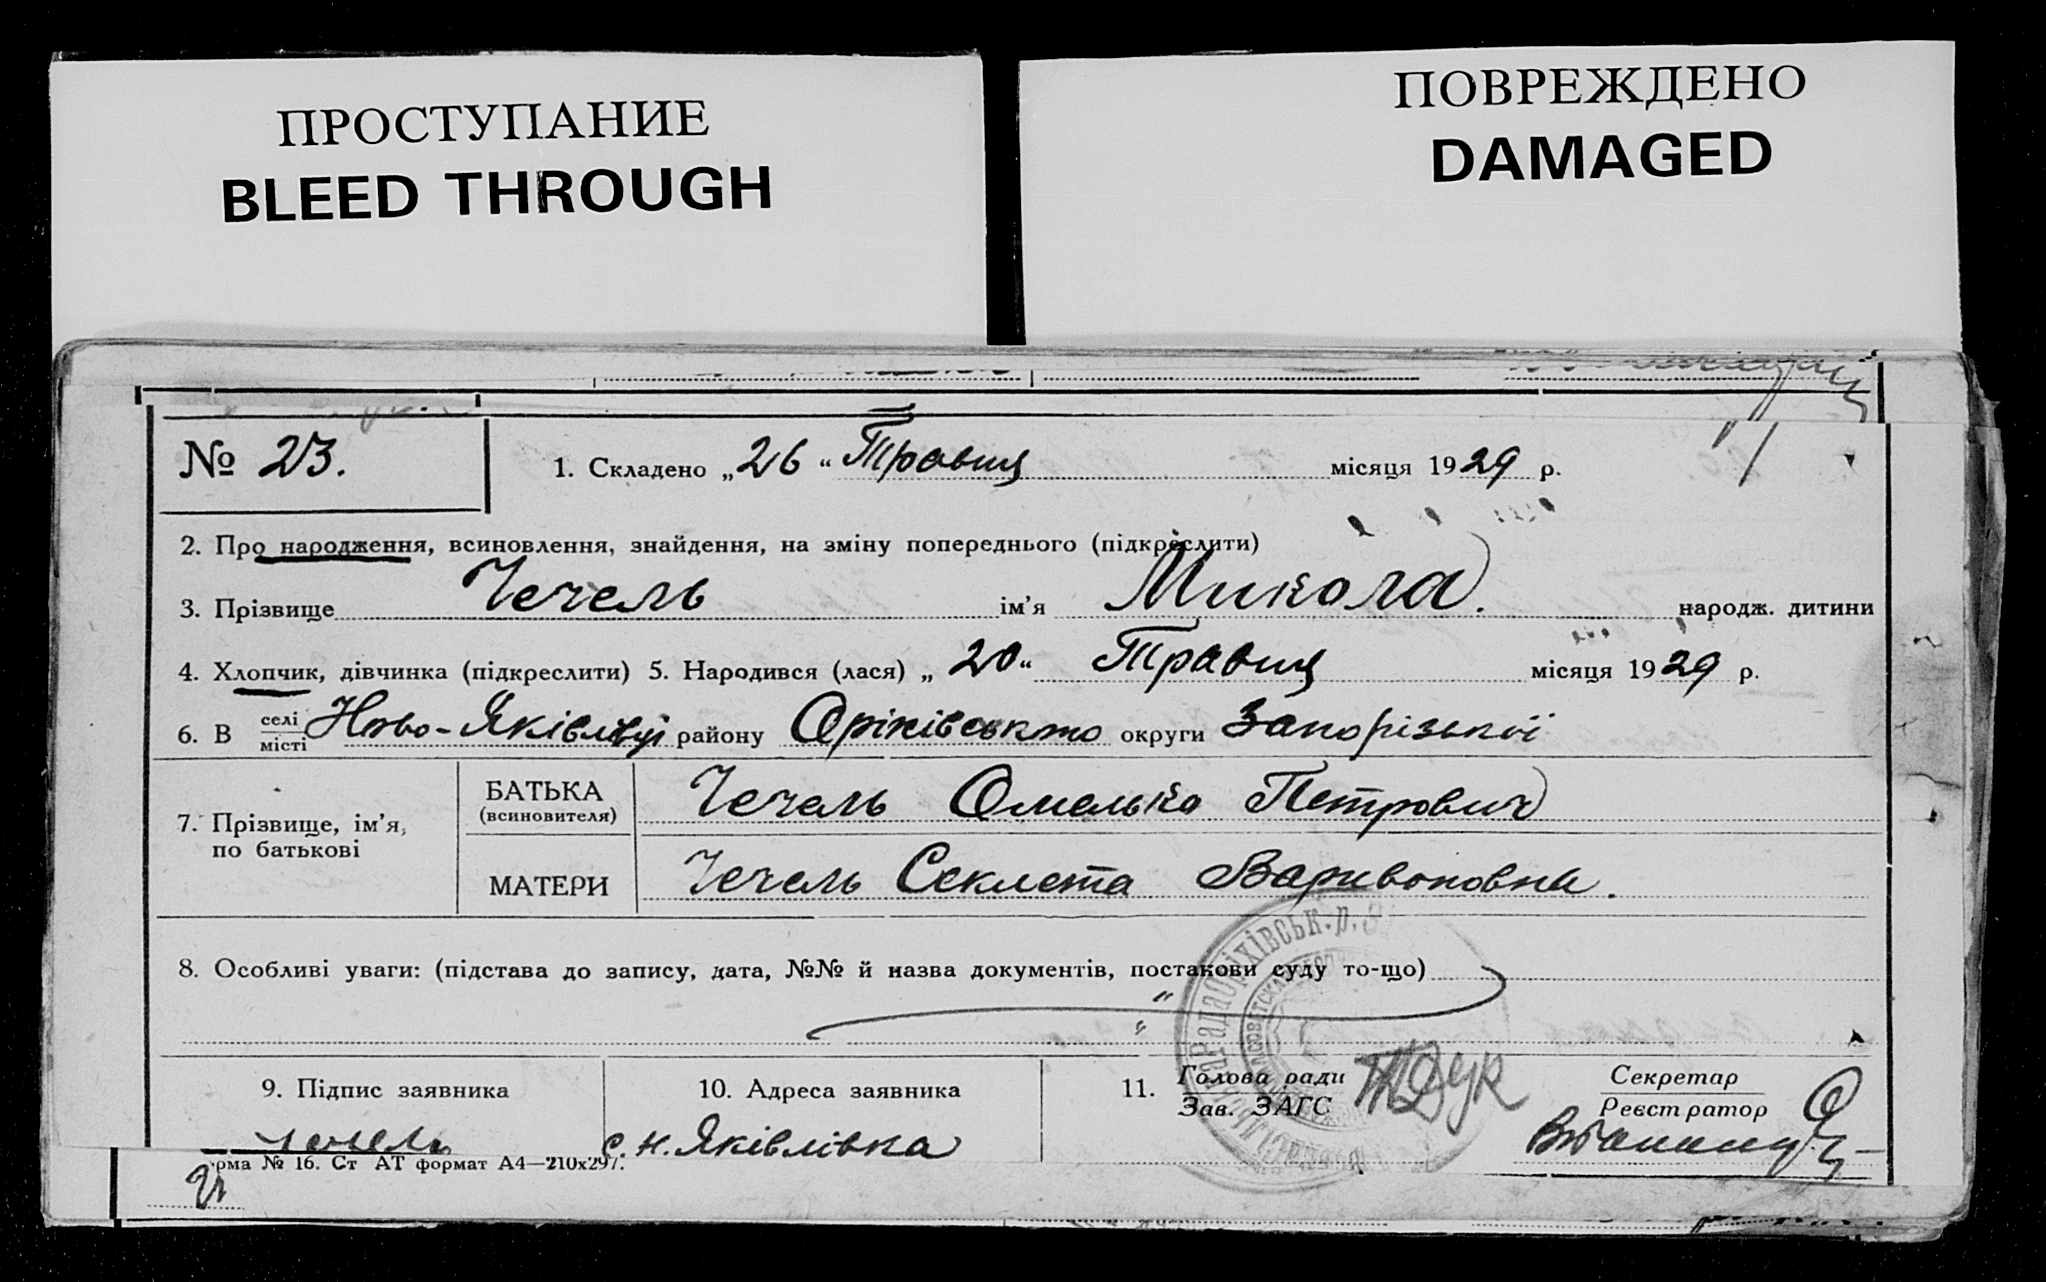 ПРОСТУПАНИЕ
BLEED THROUGH
ПОВРЕЖДЕНО
DAMAGED
№ 23. 1. Складено „26“ Травня місяця 1929 р.
2. Про народження, всиновлення, знайдення, на зміну попереднього (підкреслити)
3. Прізвище Чечель ім’я Микола. народж. дитини
4. Хлопчик, дівчинка (підкреслити) 5. Народився (лася) „20“ Травня місяця 1929 р.
6. В селі місті Ново-Яківлівці району Оріхівського округи Запорізької
7. Прізвище, ім’я, по батькові
БАТЬКА (всиновителя) Чечель Омелько Петрович
МАТЕРИ Чечель Секлета Варивоновна.
8. Особливі уваги: (підстава до запису, дата, №№ й назва документів, постакови суду то-що)
9. Підпис заявника 10. Адреса заявника 11. Голова ради Секретар
Зав. ЗАГС Реєстратор
Чечель с. Н. Яківлівка
орма № 16. Ст АТ формат А4—210х297.